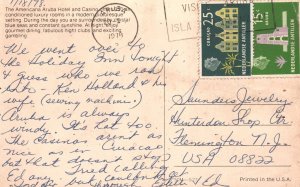 The Americana Aruba Hotel and Casino
conditioned luxury rooms in a modern
setting. During the day you are surrounded by
blue seas and constant sunshine. At night
gourmet dining, fabulous night clubs and exciting
gambling.
1/18/78
We went over to
the Holiday Inn tonight
& guess who we ran
into - Ken Holland & his
wife (sewing machine).
Aruba is always
windy. It's hot too.
The Casinos aren't as
nice as in Curacao
but that doesn't stop
Ed any. Fred called
today but
Saunders Jewelry
Hunterdon Shop Ctr
Flemington N.J.
USA 08822
Printed in the U.S.A.
VISI
CURAÇAO
25
15c
NEDERLANDSE ANTILLEN
NEDERLANDSE ANTILLEN